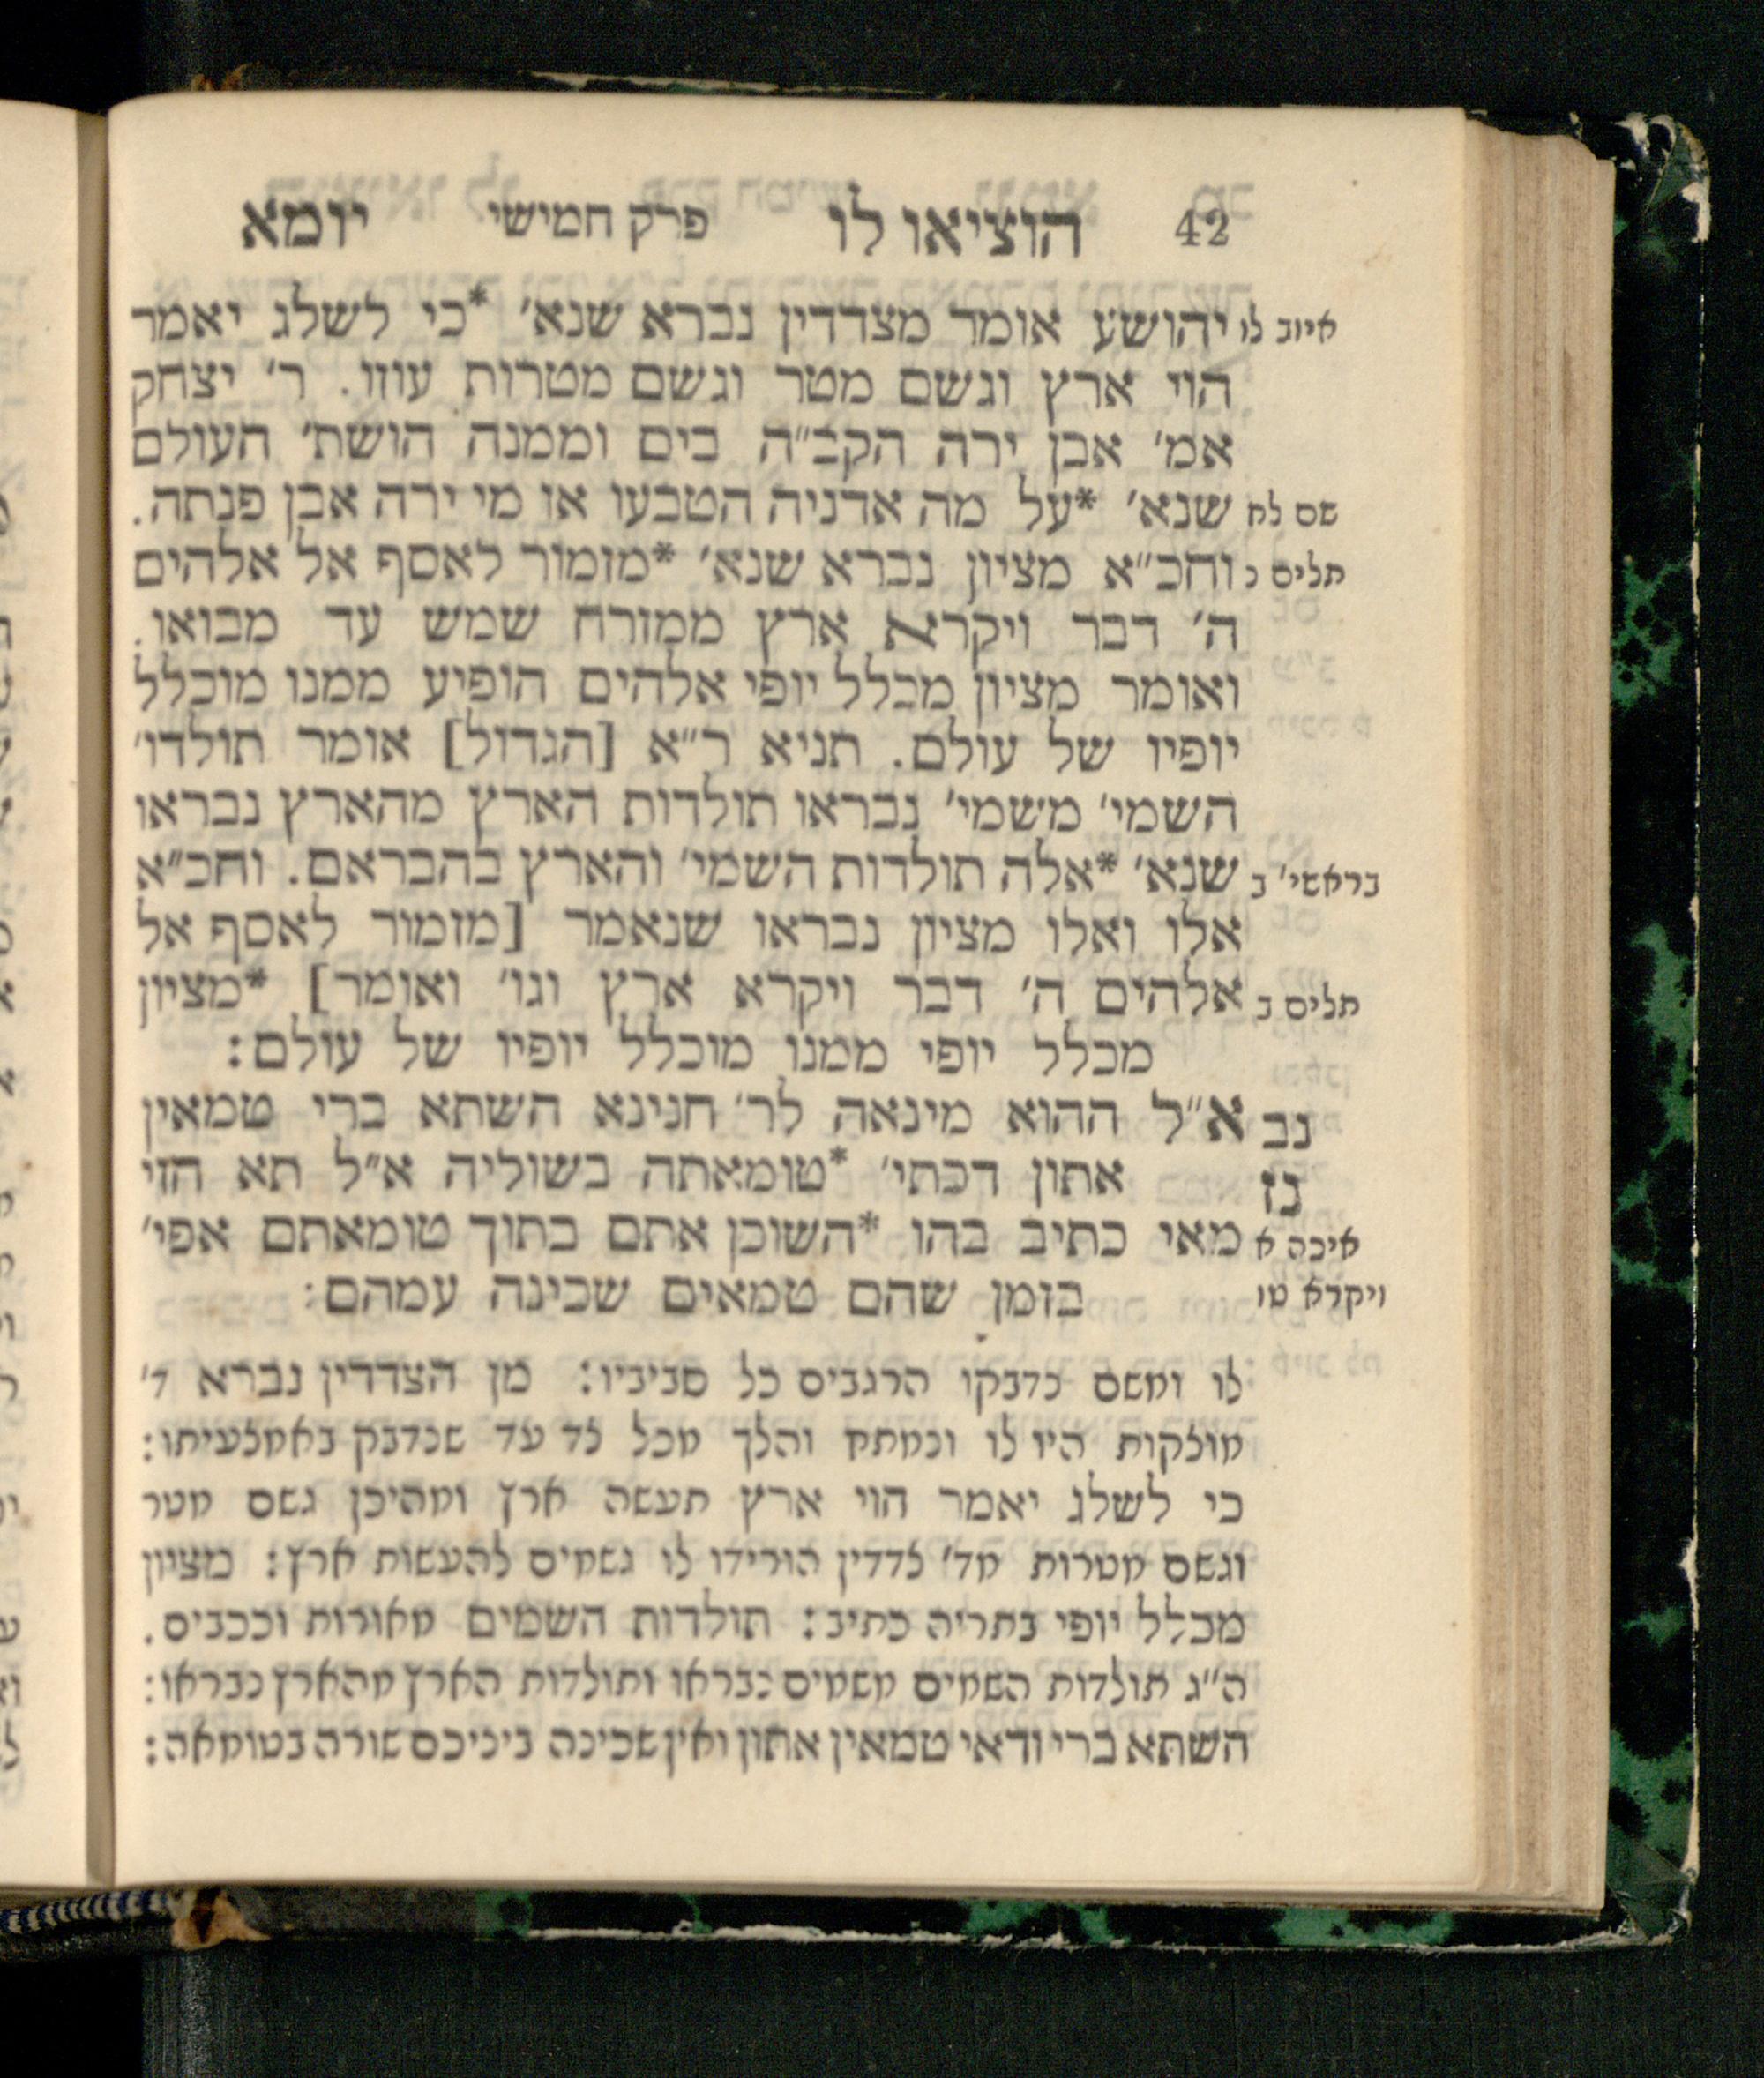 42 הוציאו לו פרק חמישי יומא
איוב לז יהושע אומר מצדדין נברא שנא׳ *כי לשלג יאמר
הוי ארץ וגשם מטר וגשם מטרות עוזו. ר׳ יצחק
אמ׳ אבן ירה הקב״ה בים וממנה הושת׳ העולם
שם לח שנא׳ *על מה אדניה הטבעו או מי ירה אבן פנתה.
תלים נ וחכ״א מציון נברא שנא׳ *מזמור לאסף אל אלהים
ה׳ דבר ויקרא ארץ ממזרח שמש עד מבואו.
ואומר מציון מכלל יופי אלהים הופיע ממנו מוכלל
יופיו של עולם. תניא ר״א [הגדול] אומר תולדו׳
השמי׳ משמי׳ נבראו תולדות הארץ מהארץ נבראו
בראשי׳ ב שנא׳ *אלה תולדות השמי׳ והארץ בהבראם. וחכ״א
אלו ואלו מציון נבראו שנאמר [מזמור לאסף אל
תלים נ אלהים ה׳ דבר ויקרא ארץ וגו׳ ואומר] *מציון
מכלל יופי ממנו מוכלל יופיו של עולם:
נב א״ל ההוא מינאה לר׳ חנינא השתא ברי טמאין
נז אתון דכתי׳ *טומאתה בשוליה א״ל תא חזי
איכה א מאי כתיב בהו *השוכן אתם בתוך טומאתם אפי׳
ויקרא טז בזמן שהם טמאים שכינה עמהם:
לו ומשם נדבקו הרגבים כל סביביו: מן הצדדין נברא ד׳
מולקות היו לו ונמתח והלך מכל צד עד שנדבק באמצעיתו:
כי לשלג יאמר הוי ארץ תעשה ארץ ומהיכן גשם מטר
וגשם מטרות מד׳ צדדין הורידו לו גשמים להעשות ארץ: מציון
מכלל יופי בתריה כתיב: תולדות השמים מאורות וככבים.
ה״ג תולדות השמים משמים נבראו ותולדות הארץ מהארץ נבראו:
השתא ברי ודאי טמאין אתון ואין שכינה ביניכם שורה בטומאה: